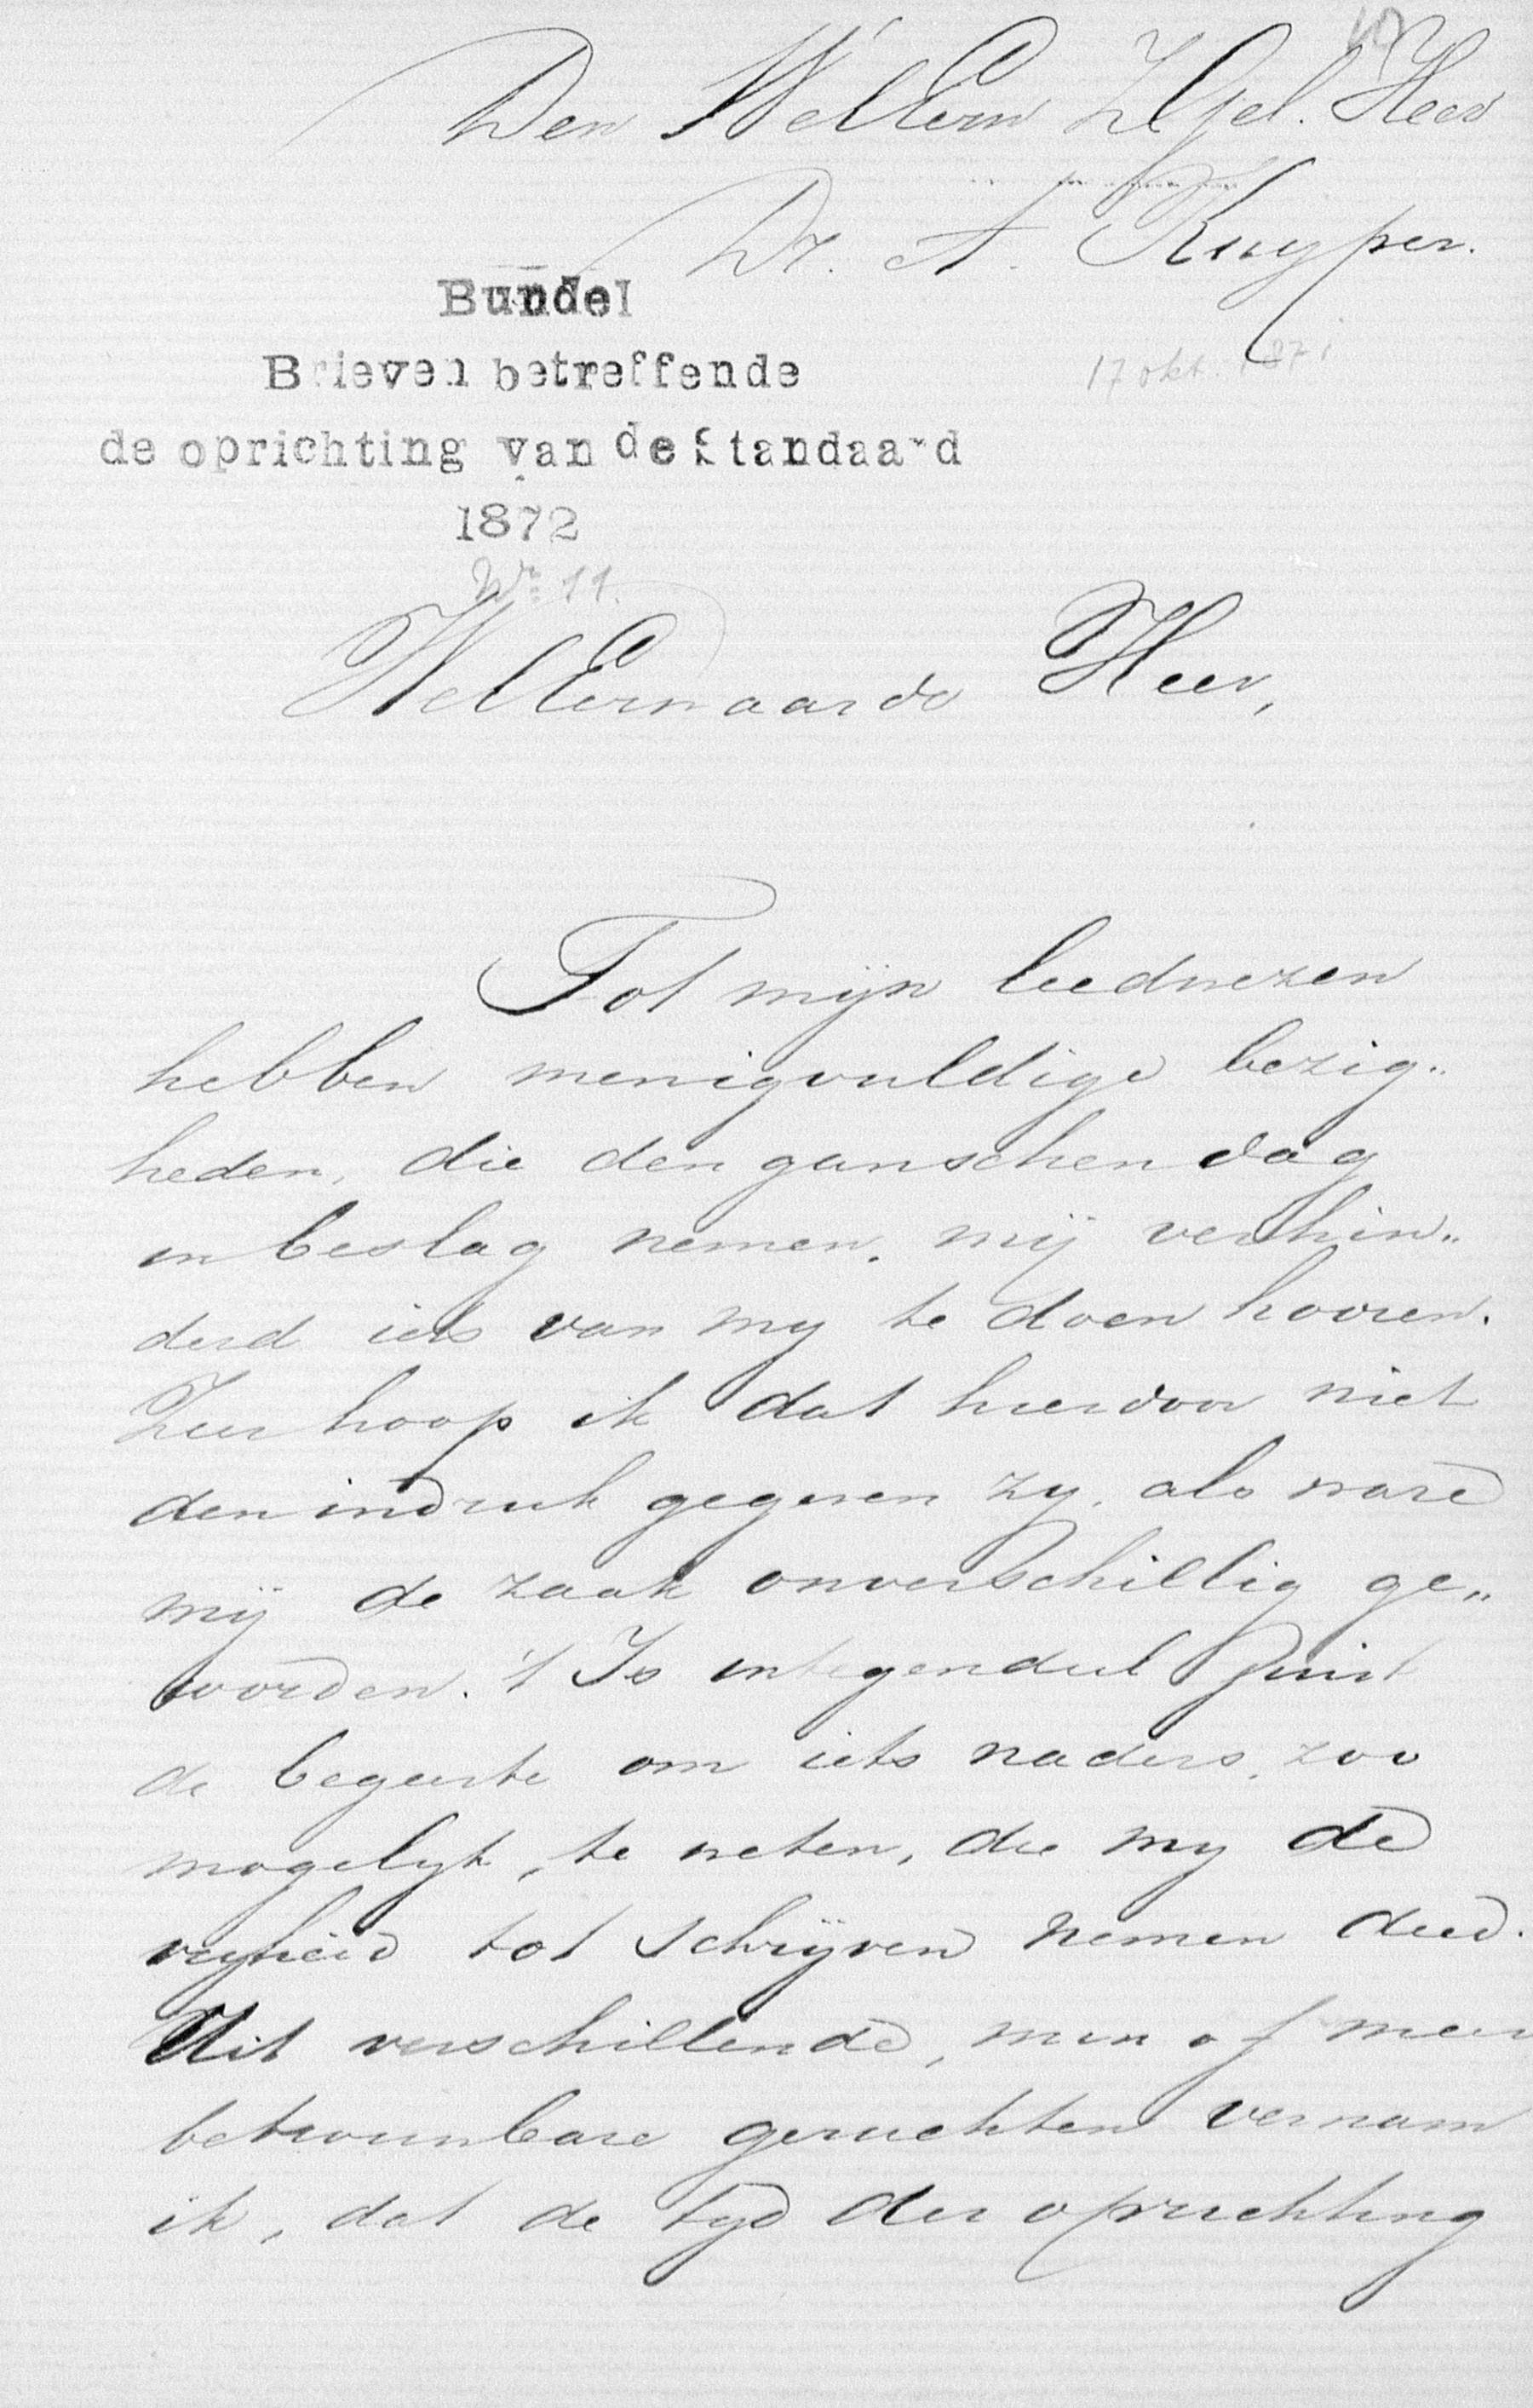 Den WelEerw ZGel. Heer
Dr. A. Kuyper.
17 okt. 1871
Bundel
Brieven betreffende
de oprichting van de Standaard
1872
Nr. 11.
WelEerwaarde Heer,
Tot mijn leedwezen
hebben menigvuldige bezig„
heden, die den ganschen dag
in beslag nemen, mij verhin„
derd iets van my te doen hooren.
Zeer hoop ik dat hierdoor niet
den indruk gegeven zy, als ware
mij de zaak onverschillig ge„
worden. 't Is integendeel juist
de begeerte om iets naders, zoo
mogelyk, te weten, die my de
vryheid tot schrijven nemen deed.
Uit verschillende, min of meer
betrouwbare geruchten vernam
ik, dat de tyd der oprichting